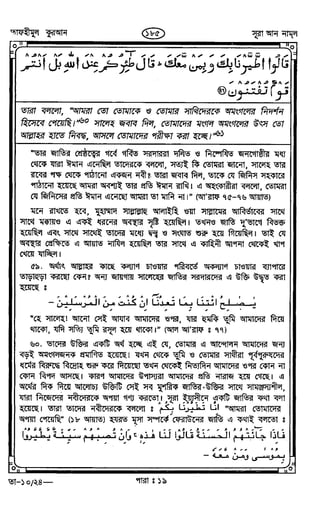 তাফহীমুল কুরআন ১৮৫ সূরা আন নামল
قَالُوا اطَّيَّرْنَا بِكَ وَبِمَنْ مَعَكَ ۚ قَالَ طَائِرُكُمْ عِنْدَ اللَّهِ ۖ بَلْ أَنْتُمْ
قَوْمٌ تُفْتَنُونَ
তারা বললো, “আমরা তো তোমাকে ও তোমার সাথিদেরকে অমংগলের নিদর্শন
হিসেবে পেয়েছি।” সালেহ জবাব দিল, তোমাদের মংগল অমংগলের উৎস তো
আল্লাহর হাতে নিবদ্ধ, আসলে তোমাদের পরীক্ষা করা হচ্ছে।
“তার জাতির শ্রেষ্ঠত্বের গর্বে গর্বিত সরদাররা দলিত ও নিষ্পেষিত জনগোষ্ঠীর মধ্য
থেকে যারা ঈমান এনেছিল তাদেরকে বললো, সত্যই কি তোমরা জানো, সালেহ তার
রবের পক্ষ থেকে পাঠানো একজন নবী? তারা জবাব দিল, তাকে যে জিনিস সহকারে
পাঠানো হয়েছে আমরা অবশ্যই তার প্রতি ঈমান রাখি। এ অহংকারীরা বললো, তোমরা
যে জিনিসের প্রতি ঈমান এনেছো আমরা তা মানি না।” (আ'রাফ ৭৫-৭৬ আয়াত)
মনে রাখতে হবে, মুহাম্মাদ সাল্লাল্লাহু আলাইহি ওয়া সাল্লামের আবির্ভাবের সাথে
সাথে মক্কায়ও এ একই ধরনের অবস্থার সৃষ্টি হয়েছিল। তখনও জাতি দু'ভাগে বিভক্ত
হয়েছিল এবং সাথে সাথেই তাদের মধ্যে দ্বন্দ্ব ও সংঘাত শুরু হয়ে গিয়েছিল। তাই যে
অবস্থার প্রেক্ষিতে এ আয়াত নাযিল হয়েছিল তার সাথে এ কাহিনী আপনা থেকেই খাপ
খেয়ে যাচ্ছিল।
৫৯. অর্থাৎ আল্লাহর কাছে কল্যাণ চাওয়ার পরিবর্তে অকল্যাণ চাওয়ার ব্যাপারে
তাড়াহুড়া করছো কেন? অন্য জায়গায় সালেহের জাতির সরদারদের এ উক্তি উদ্ধৃত করা
হয়েছে :
يٰصٰلِحُ ائْتِنَا بِمَا تَعِدُنَا إِنْ كُنْتَ مِنَ الْمُرْسَلِينَ -
“হে সালেহ! আনো সেই আযাব আমাদের ওপর, যার হুমকি তুমি আমাদের দিয়ে
থাকো, যদি সত্যি তুমি রসূল হয়ে থাকো।” (আল আ'রাফ : ৭৭)
৬০. তাদের উক্তির একটি অর্থ হচ্ছে এই যে, তোমার এ আন্দোলন আমাদের জন্য
বড়ই অমংগলজনক প্রমাণিত হয়েছে। যখন থেকে তুমি ও তোমার সাথীরা পূর্বপুরুষদের
ধর্মের বিরুদ্ধে বিদ্রোহ শুরু করে দিয়েছো তখন থেকেই নিত্যদিন আমাদের ওপর কোন না
কোন বিপদ আসছে। কারণ আমাদের উপাস্যরা আমাদের প্রতি নারাজ হয়ে গেছে। এ
অর্থের দিক দিয়ে আলোচ্য উক্তিটি সেই সব মুশরিক জাতির উক্তির সাথে সামঞ্জস্যশীল,
যারা নিজেদের নবীদেরকে অপয়া গণ্য করতো। সূরা ইয়াসীনে একটি জাতির কথা বলা
হয়েছে। তারা তাদের নবীদেরকে বললো : إِنَّا تَطَيَّرْنَا بِكُمْ “আমরা তোমাদের
অপয়া পেয়েছি” (১৮ আয়াত) হযরত মূসা সম্পর্কে ফেরাউনের জাতি এ কথাই বলতো :
فَإِذَا جَاءَتْهُمُ الْحَسَنَةُ قَالُوا لَنَا هٰذِهِ ۚ وَإِنْ تُصِبْهُمْ سَيِّئَةٌ يَطَّيَّرُوا
بِمُوسَى وَمَنْ مَعَهُ -
তা-১০/২৪— পারা : ১৯